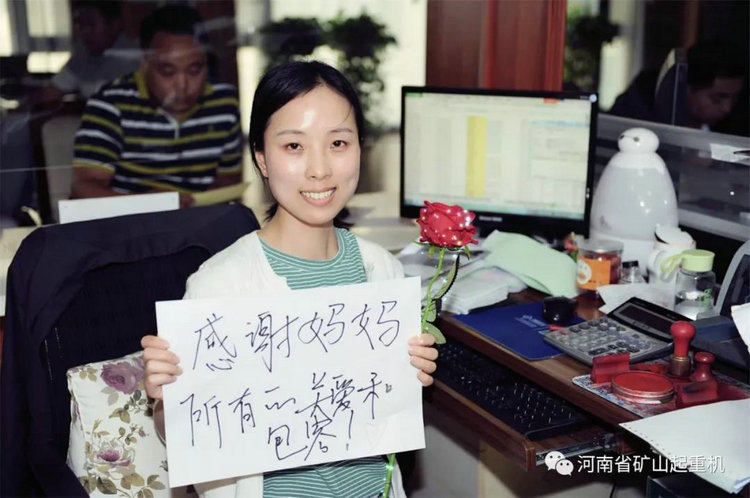 感谢妈妈
所有的关爱和
包容!
河南省矿山起重机